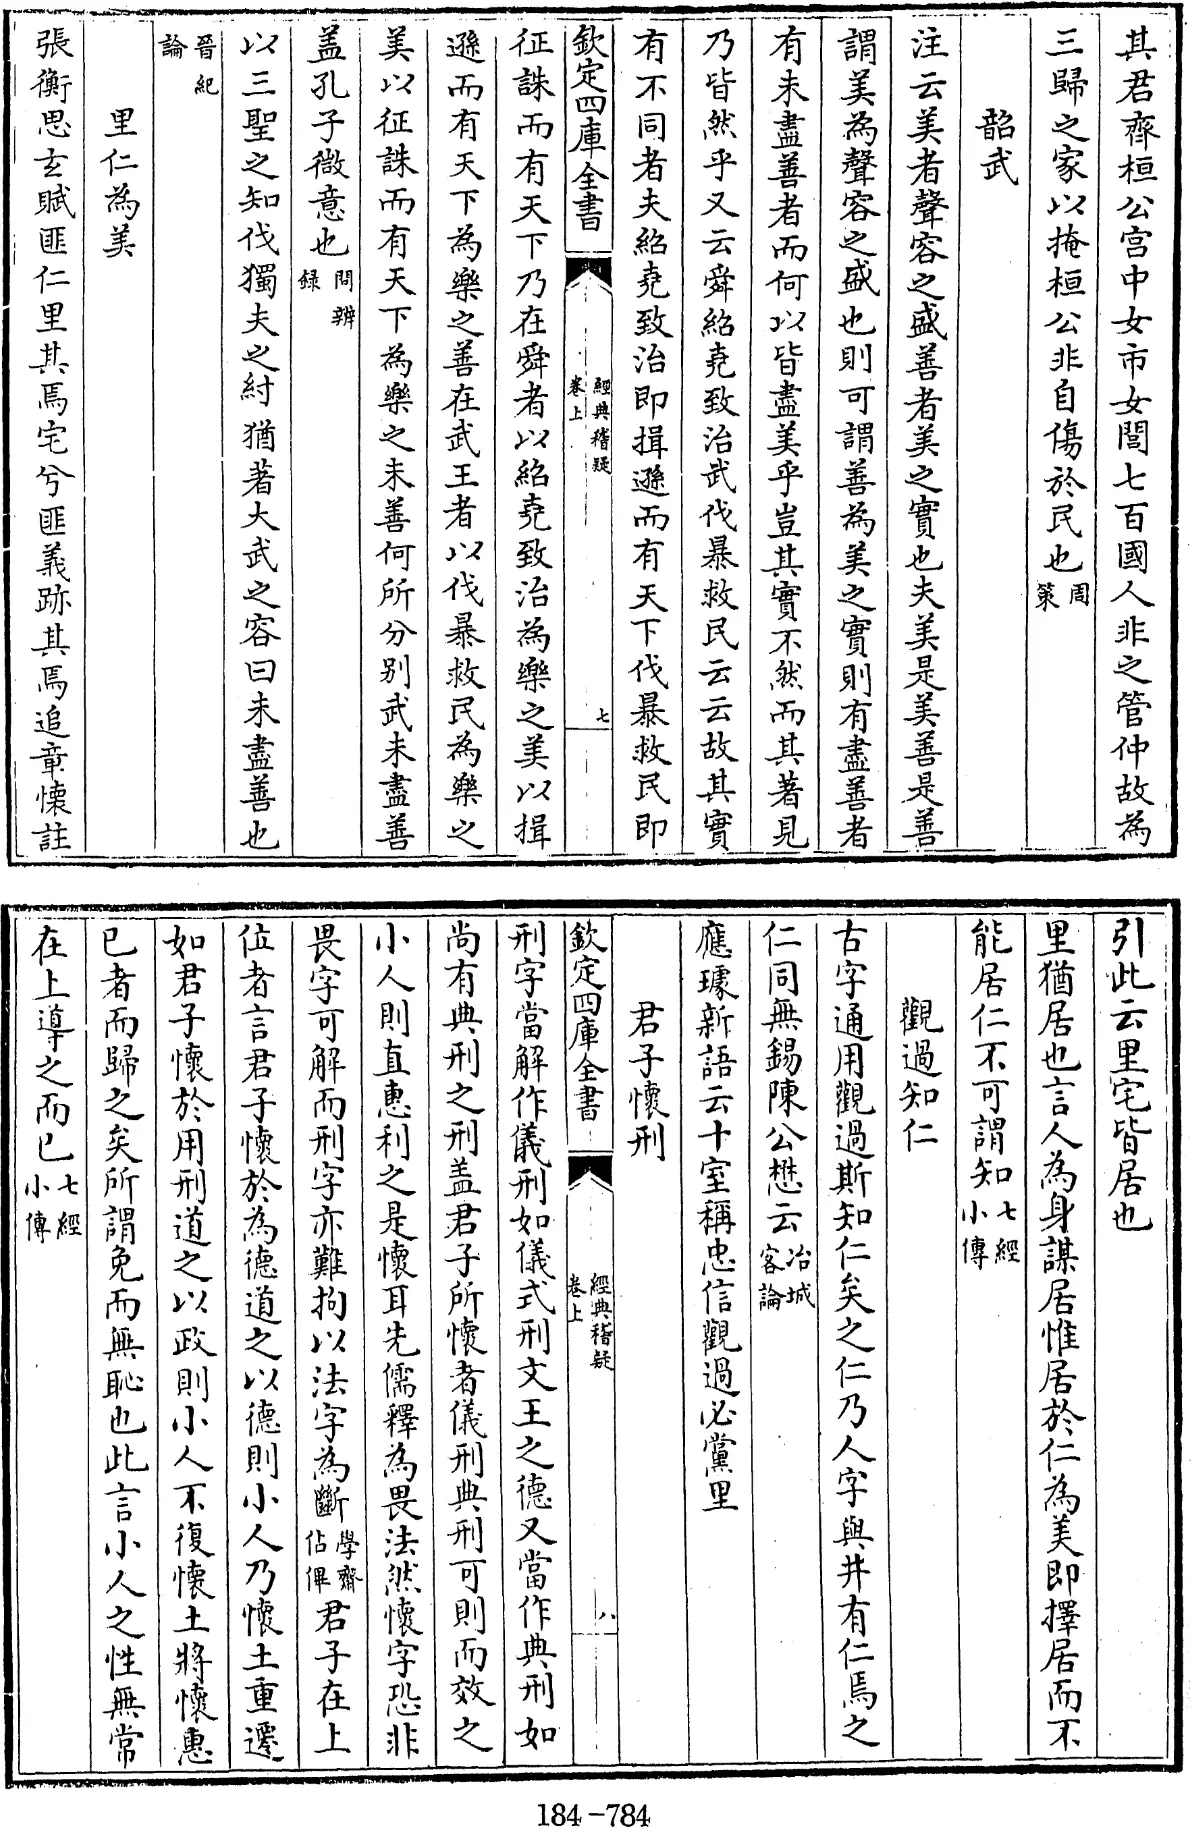 其君齊桓公宫中女市女閭七百國人非之管仲故為
三歸之家以掩桓公非自傷於民也周策
韶武
注云美者聲容之盛善者美之實也夫美是美善是善
謂美為聲容之盛也則可謂善為美之實則有盡善者
有未盡善者而何以皆盡美乎豈其實不然而其著見
乃皆然乎又云舜紹堯致治武伐暴救民云云故其實
有不同者夫紹堯致治即揖遜而有天下伐暴救民即
欽定四庫全書 經典稽疑 卷上 七
征誅而有天下乃在舜者以紹堯致治為樂之美以揖
遜而有天下為樂之善在武王者以伐暴救民為樂之
美以征誅而有天下為樂之未善何所分别武未盡善
盖孔子微意也問辨録
以三聖之知伐獨夫之紂猶著大武之容曰未盡善也
晉紀論
里仁為美
張衡思玄賦匪仁里其焉宅兮匪義跡其焉追章懐註
引此云里宅皆居也
里猶居也言人為身謀居惟居於仁為美即擇居而不
能居仁不可謂知七經小傳
觀過知仁
古字通用觀過斯知仁矣之仁乃人字與井有仁焉之
仁同無錫陳公懋云冶城客論
應璩新語云十室稱忠信觀過必黨里
君子懐刑
欽定四庫全書 經典稽疑 卷上 八
刑字當解作儀刑如儀式刑文王之德又當作典刑如
尚有典刑之刑盖君子所懐者儀刑典刑可則而效之
小人則直惠利之是懐耳先儒釋為畏法然懐字恐非
畏字可解而刑字亦難拘以法字為斷學齋佔畢君子在上
位者言君子懐於為德道之以德則小人乃懐土重遷
如君子懐於用刑道之以政則小人不復懐土將懐惠
已者而歸之矣所謂免而無恥也此言小人之性無常
在上導之而已七經小傳
184-784